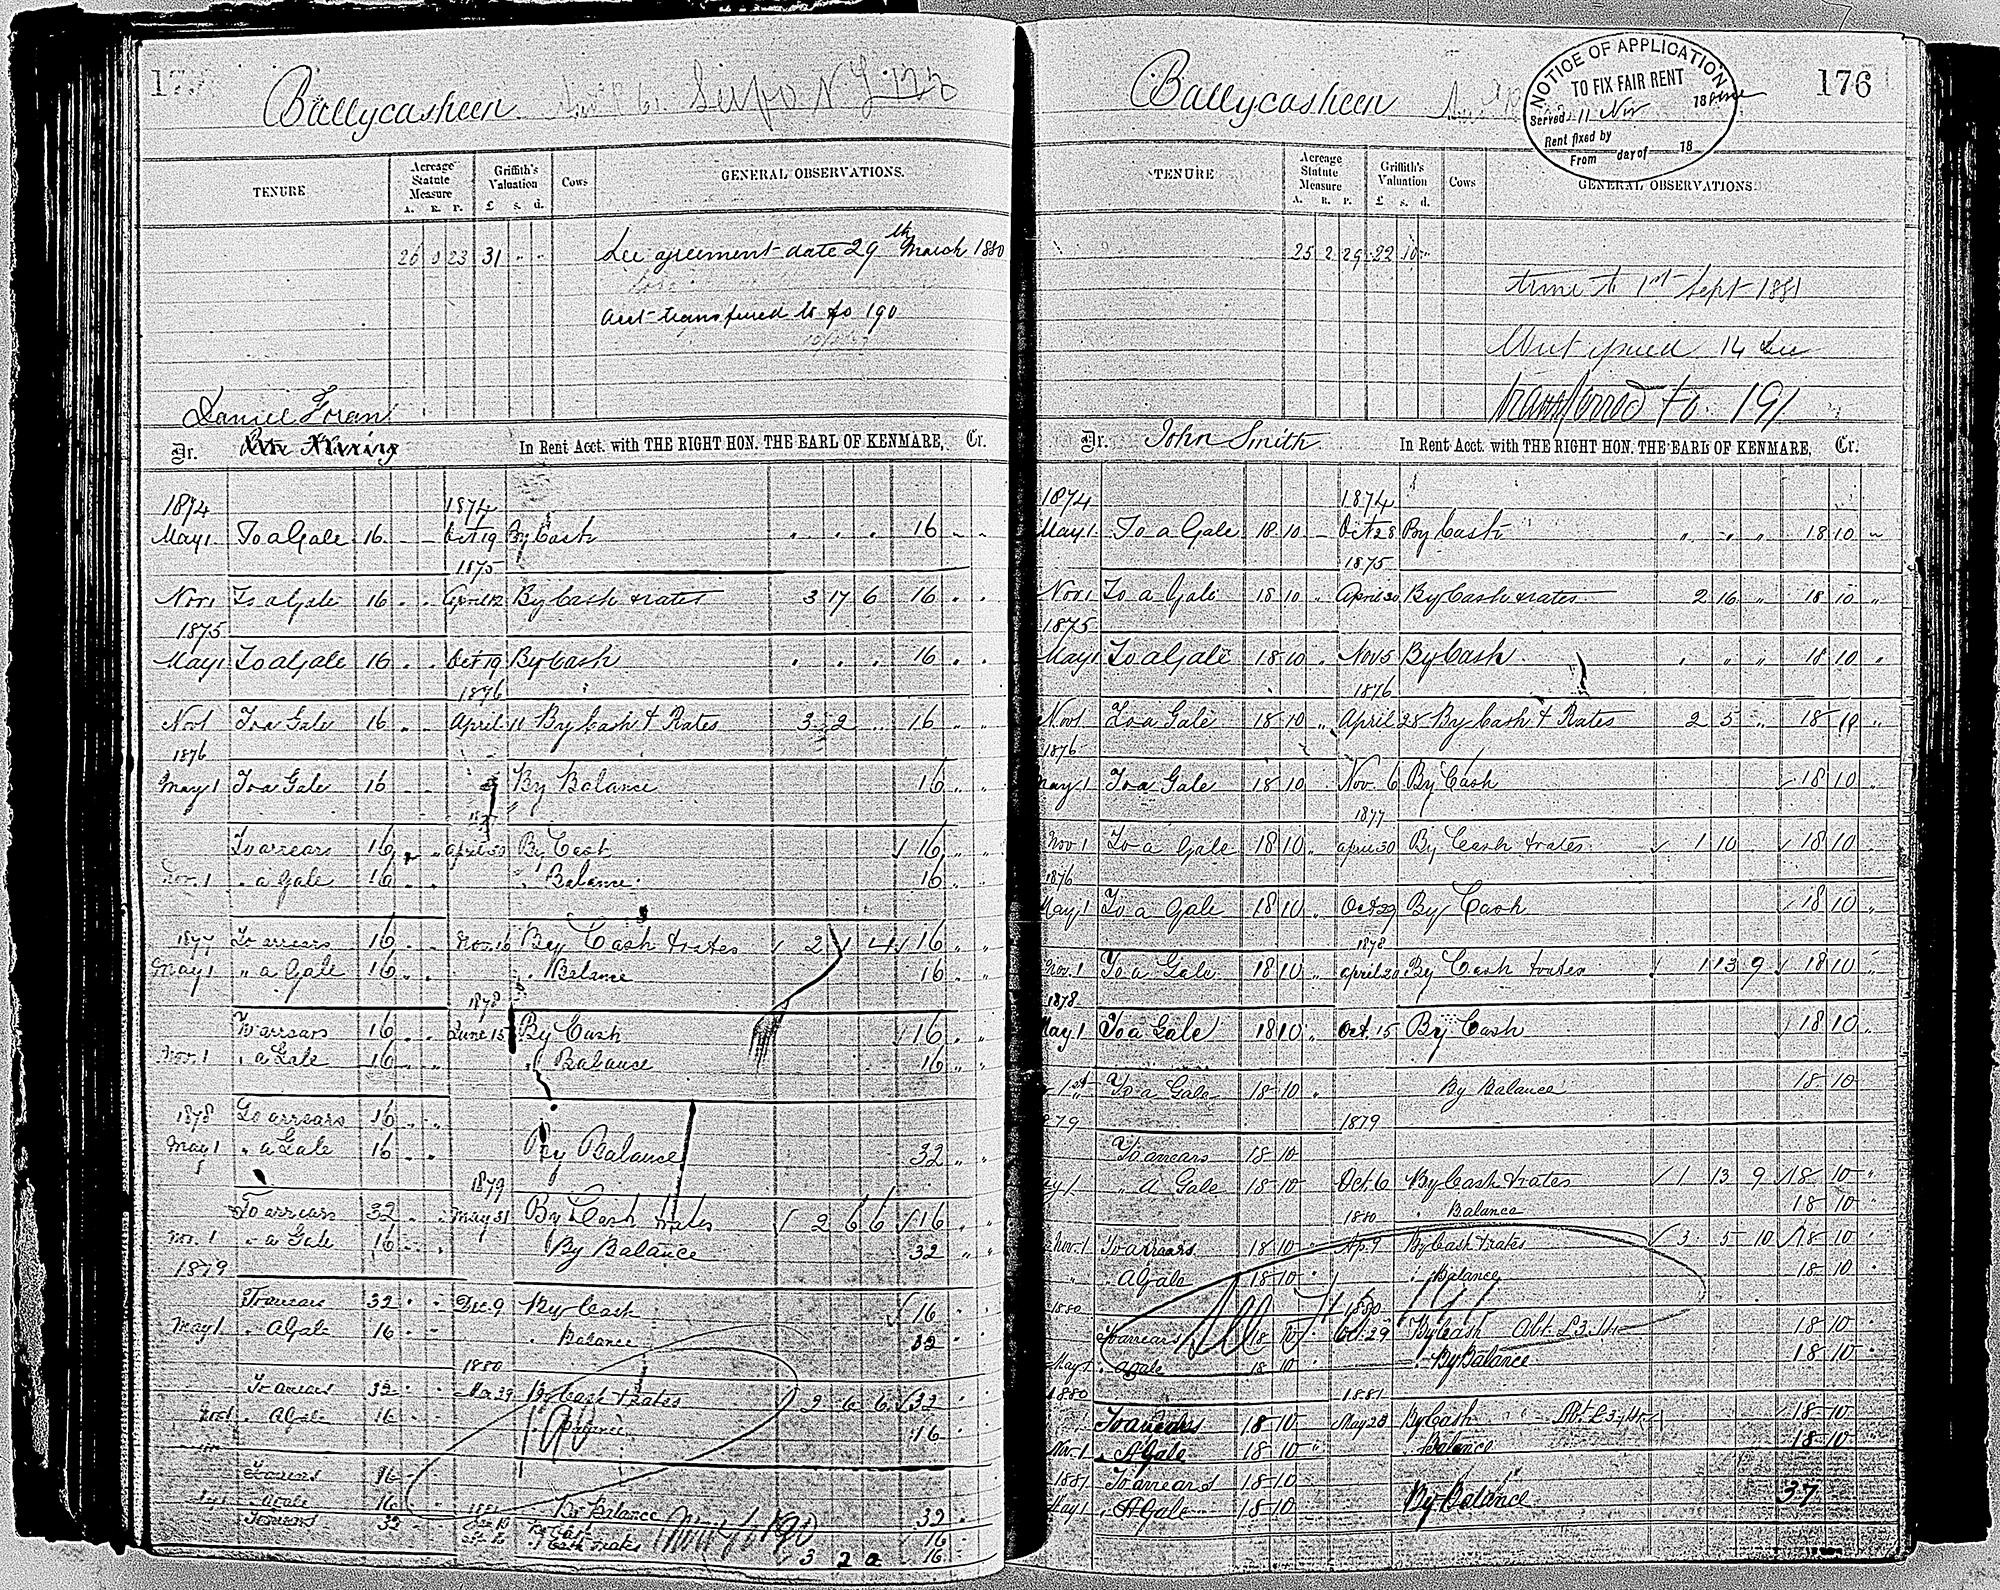 Ballycasheen
TENURE
Acreage Statute Measure
A. R. P.
Griffith's Valuation
£ s. d.
Cows
GENERAL OBSERVATIONS.
26 0 23 31 " "
See agreement date 29th March 1880
acct transferred to fo 190
Daniel Foran
Dr.
In Rent Acct. with THE RIGHT HON. THE EARL OF KENMARE, Cr.
1874 1874
May 1 To a Gale 16 " " Oct 19 By Cash " " " 16 " "
1875
Nov 1 To a Gale 16 " " April 12 By Cash & rates 3 17 6 16 " "
1875
May 1 To a Gale 16 " " Oct 19 By Cash " " " 16 " "
1876
Nov 1 To a Gale 16 " " April 11 By Cash & Rates 3 2 " 16 " "
1876
May 1 To a Gale 16 " " By Balance 16 " "
To arrears 16 " " April 30 By Cash 16 " "
Nov. 1 " a Gale 16 " " " Balance 16 " "
1877 To arrears 16 " " Nov. 16 By Cash & rates 2 1 4 16 " "
May 1 " a Gale 16 " " " Balance 16 " "
1878
To arrears 16 " " June 15 By Cash 16 " "
Nov. 1 " a Gale 16 " " " Balance 16 " "
1878 To arrears 16 " "
May 1 " a Gale 16 " " By Balance 32 " "
1879
To arrears 32 " " May 31 By Cash & rates 2 6 6 16 " "
Nov. 1 " a Gale 16 " " By Balance 32 " "
1879
To arrears 32 " " Dec 9 By Cash 16 " "
May 1 " A Gale 16 " " " Balance 32 " "
1880
To arrears 32 " " Mar 29 By Cash & rates 2 6 6 32 " "
Nov 1 " A Gale 16 " " Balance 16 " "
To arrears 16
May 1 " A Gale 16 1881 By Balance 32
To arrears 32 By Cash 16
" Cash & rates 3 2 0 16
176
Ballycasheen
NOTICE OF APPLICATION
TO FIX FAIR RENT
Served 11 Nov 18
Rent fixed by
From day of 18
TENURE
Acreage Statute Measure
A. R. P.
Griffith's Valuation
£ s. d.
Cows
GENERAL OBSERVATIONS.
25 2 29 22 10 "
time to 1st Sept 1881
Writ issued 14 Dec
transferred to 191
Dr. John Smith In Rent Acct. with THE RIGHT HON. THE EARL OF KENMARE, Cr.
1874 1874
May 1 To a Gale 18 10 " Oct 28 By Cash " " " 18 10 "
1875
Nov 1 To a Gale 18 10 " April 30 By Cash & rates 2 16 " 18 10 "
1875
May 1 To a Gale 18 10 " Nov 5 By Cash " " " 18 10 "
1876
Nov 1 To a Gale 18 10 " April 28 By Cash & Rates 2 5 " 18 10 "
1876
May 1 To a Gale 18 10 Nov. 6 By Cash 18 10 "
1877
Nov 1 To a Gale 18 10 " April 30 By Cash & rates 1 10 " 18 10 "
1876
May 1 To a Gale 18 10 " Oct 29 By Cash 18 10 "
1878
Nov. 1 To a Gale 18 10 " April 20 By Cash & rates 1 13 9 18 10 "
1878
May 1 To a Gale 18 10 " Oct. 15 By Cash 18 10 "
1st To a Gale 18 10 " By Balance 18 10
79 1879
To arrears 18 10
y 1 " a Gale 18 10 Oct. 6 By Cash & rates 1 13 9 18 10 "
1880 " Balance 18 10
Nov. 1 To arrears 18 10 " Ap. 9 By Cash & rates 3 5 10 18 10 "
" A Gale 18 10 " " Balance 18 10 "
1880 1880
To arrears 18 10 " Oct. 29 By Cash Abt. £3 18 10 "
May 1 " A Gale 18 10 " By Balance 18 10 "
1880 1881
To arrears 18 10 " May 23 By Cash Abt. £3 18 10 "
Nov. 1 " A Gale 18 10 " " Balance 18 10 "
1881 To arrears 18 10
May 1 " A Gale 18 10 By Balance 37